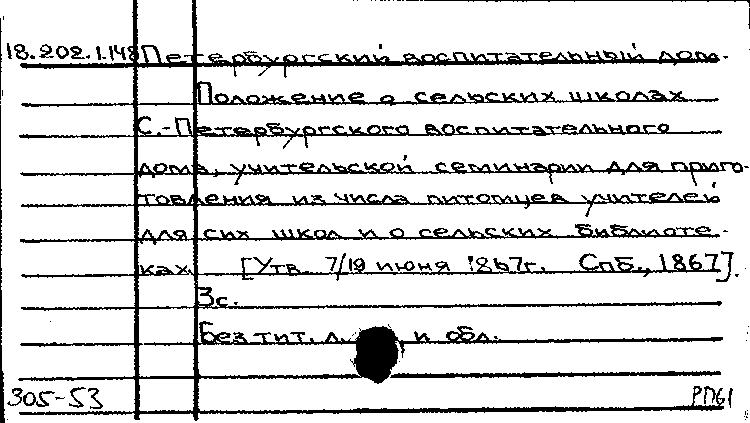 18.202.1.148 Петербургский воспитательный дом.
Положение о сельских школах
С.-Петербургского воспитательного
дома, учительской семинарии для приго-
товления из числа питомцев учителей
для сих школ и о сельских библиоте-
ках. [Утв. 7/19 июня 1867г. Спб., 1867].
3с.
Без тит. л. и обл.
305-53 РП61